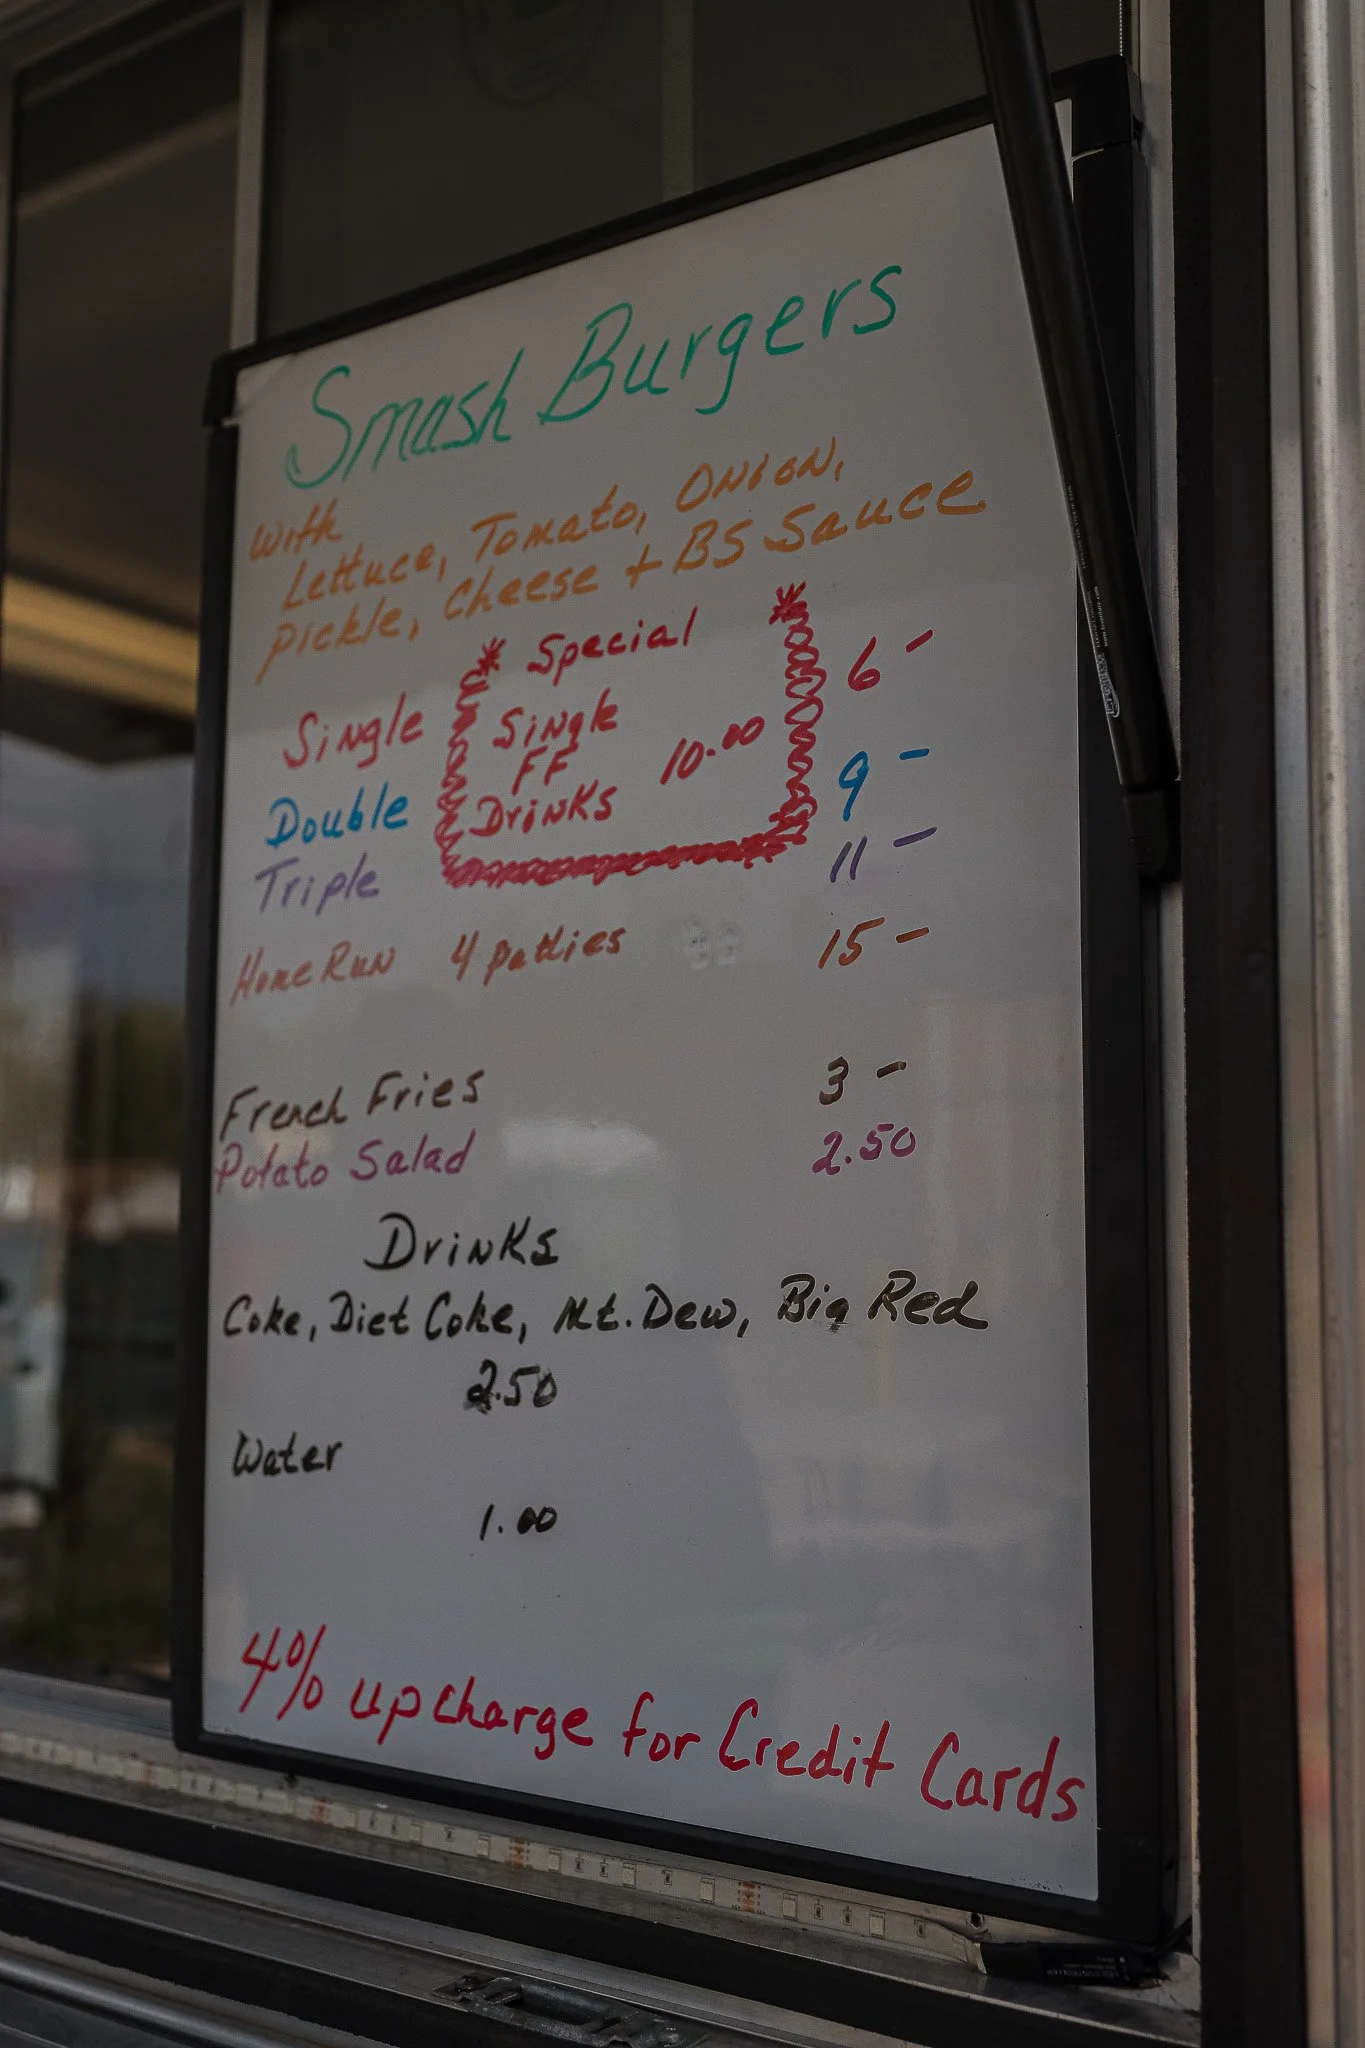 Smash Burgers
with
Lettuce, Tomato, Onion,
Pickle, Cheese + BS Sauce
* Special *
Single 6-
Single
FF 10.00
Drinks
Double 9-
Triple 11-
Home Run 4 patties 15-
French Fries 3-
Potato Salad 2.50
Drinks
Coke, Diet Coke, Mt. Dew, Big Red
2.50
Water
1.00
4% upcharge for Credit Cards